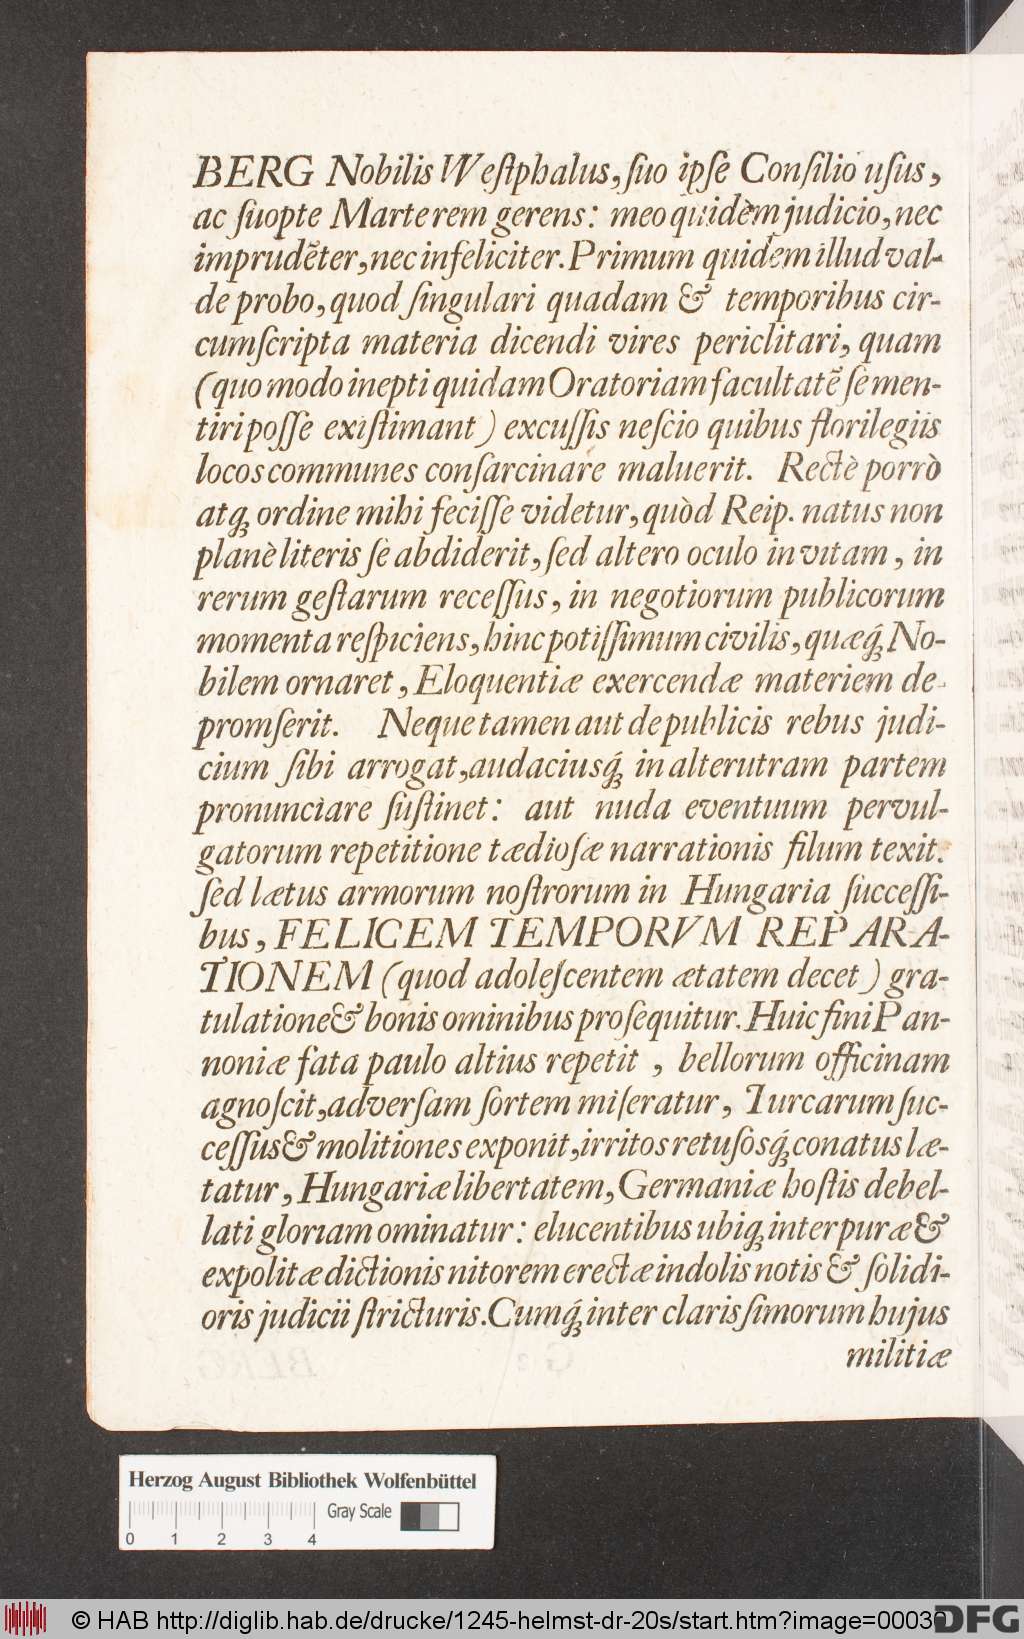 BERG Nobilis Westphalus, ſuo ipſe Conſilio uſus,
ac ſuopte Marte rem gerens: meo quidèm judicio, nec
imprudẽter, nec infeliciter. Primum quidem illud val-
de probo, quod ſingulari quadam & temporibus cir-
cumſcripta materia dicendi vires periclitari, quam
(quomodo inepti quidam Oratoriam facultatẽ ſe men-
tiri poſſe exiſtimant) excuſſis neſcio quibus florilegiis
locos communes conſarcinare maluerit. Rectè porrò
atq́; ordine mihi feciſſe videtur, quòd Reip. natus non
planè literis ſe abdiderit, ſed altero oculo in vitam, in
rerum geſtarum receſſus, in negotiorum publicorum
momenta reſpiciens, hinc potiſſimum civilis, quæq́; No-
bilem ornaret, Eloquentiæ exercendæ materiem de-
promſerit. Neque tamen aut de publicis rebus judi-
cium ſibi arrogat, audaciusq́; in alterutram partem
pronunciare ſuſtinet: aut nuda eventuum pervul-
gatorum repetitione tædioſæ narrationis filum texit.
ſed lætus armorum noſtrorum in Hungaria ſucceſſi-
bus, FELICEM TEMPORVM REPARA-
TIONEM (quod adoleſcentem ætatem decet) gra-
tulatione & bonis ominibus proſequitur. Huic fini Pan-
noniæ fata paulo altius repetit, bellorum officinam
agnoſcit, adverſam ſortem miſeratur, Turcarum ſuc-
ceſſus & molitiones exponit, irritos retuſosq́; conatus læ-
tatur, Hungariæ libertatem, Germaniæ hoſtis debel-
lati gloriam ominatur: elucentibus ubiq́; inter puræ &
expolitæ dictionis nitorem erectæ indolis notis & ſolidi-
oris judicii ſtricturis. Cumq́; inter clarisſimorum hujus
militiæ
Herzog August Bibliothek Wolfenbüttel
Gray Scale
0 1 2 3 4
© HAB http://diglib.hab.de/drucke/1245-helmst-dr-20s/start.htm?image=00030
DFG